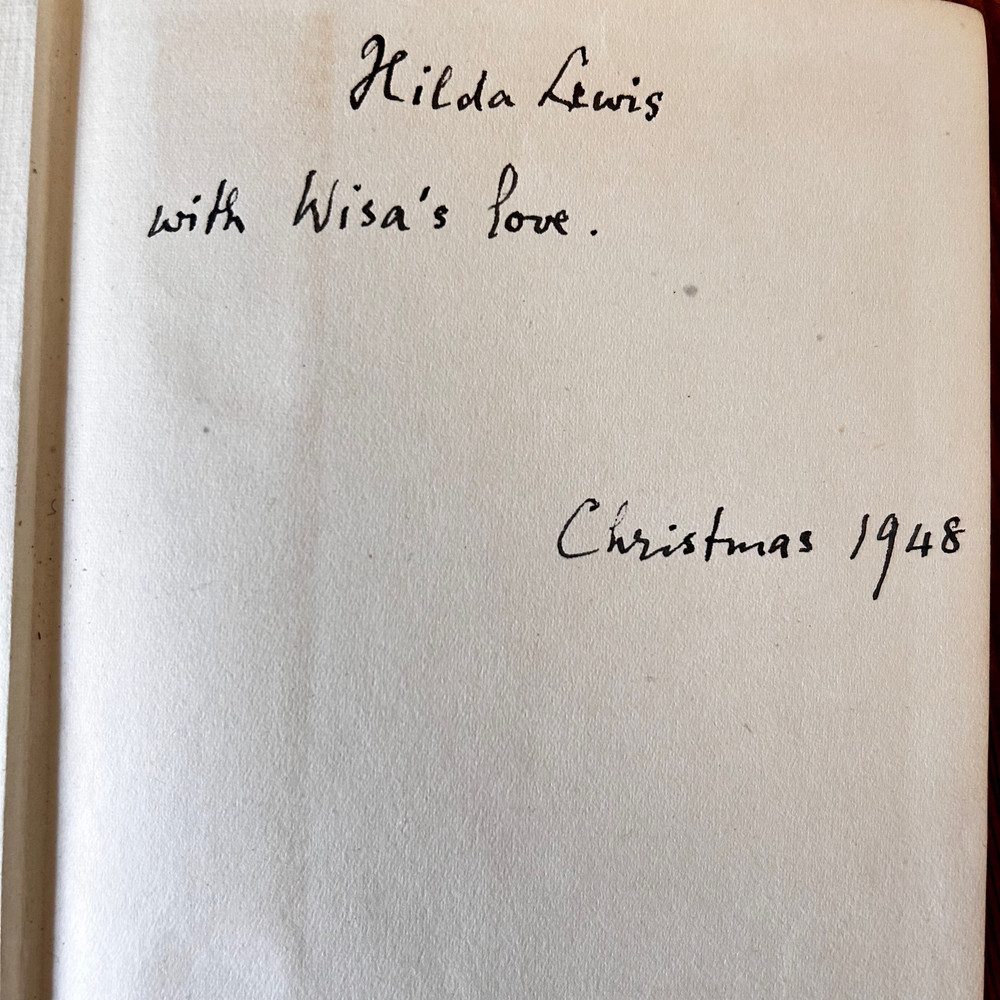 Hilda Lewis
with Wisa's love.
Christmas 1948